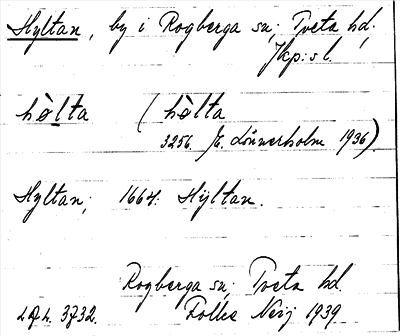 Hyltan, by i Rogberga sn; Tveta hd.
Jkp:s l.
hòlta (hòlta
3256. E. Lönnerholm 1936)
Hyltan; 1664: Hÿltan.
Rogberga sn; Tveta hd.
3732. Folke Nerj 1939